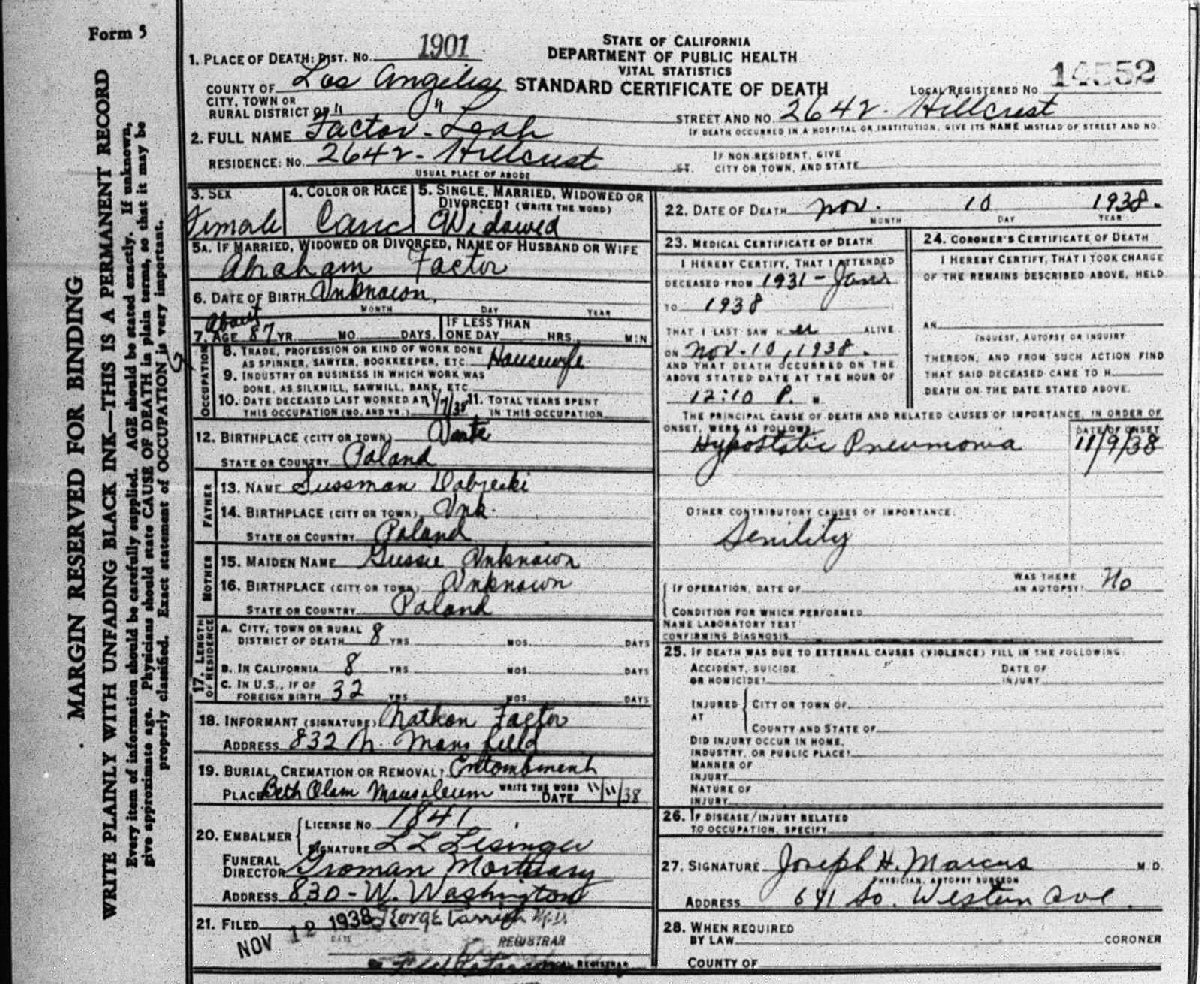 Form 5
MARGIN RESERVED FOR BINDING
WRITE PLAINLY WITH UNFADING BLACK INK—THIS IS A PERMANENT RECORD
Every item of information should be carefully supplied. AGE should be stated exactly. If unknown,
give approximate age. Physicians should state CAUSE OF DEATH in plain terms, so that it may be
properly classified. Exact statement of OCCUPATION is very important.
STATE OF CALIFORNIA
DEPARTMENT OF PUBLIC HEALTH
VITAL STATISTICS
STANDARD CERTIFICATE OF DEATH
1. PLACE OF DEATH: DIST. NO. 1901
COUNTY OF Los Angeles
CITY, TOWN OR
RURAL DISTRICT OF " "
LOCAL REGISTERED NO. 14552
STREET AND NO. 2642 - Hillcrest
IF DEATH OCCURRED IN A HOSPITAL OR INSTITUTION, GIVE ITS NAME INSTEAD OF STREET AND NO.
2. FULL NAME Factor - Leah
RESIDENCE: NO. 2642 - Hillcrest ST.
USUAL PLACE OF ABODE
IF NON-RESIDENT, GIVE
CITY OR TOWN, AND STATE
3. SEX
Female
4. COLOR OR RACE
Cauc
5. SINGLE, MARRIED, WIDOWED OR
DIVORCED? (WRITE THE WORD)
Widowed
5A. IF MARRIED, WIDOWED OR DIVORCED, NAME OF HUSBAND OR WIFE
Abraham Factor
6. DATE OF BIRTH Unknown
MONTH DAY YEAR
About
7. AGE 87 YR. MO. DAYS. IF LESS THAN
ONE DAY HRS. MIN
OCCUPATION
8. TRADE, PROFESSION OR KIND OF WORK DONE
AS SPINNER, SAWYER, BOOKKEEPER, ETC. Housewife
9. INDUSTRY OR BUSINESS IN WHICH WORK WAS
DONE, AS SILKMILL, SAWMILL, BANK, ETC
10. DATE DECEASED LAST WORKED AT
THIS OCCUPATION (MO. AND YR.)
11. TOTAL YEARS SPENT
IN THIS OCCUPATION
12. BIRTHPLACE (CITY OR TOWN)
STATE OR COUNTRY Poland
FATHER
13. NAME Sussman
14. BIRTHPLACE (CITY OR TOWN) Unk.
STATE OR COUNTRY Poland
MOTHER
15. MAIDEN NAME Gussie Unknown
16. BIRTHPLACE (CITY OR TOWN) Unknown
STATE OR COUNTRY Poland
17. LENGTH
OF RESIDENCE
A. CITY, TOWN OR RURAL
DISTRICT OF DEATH 8 YRS MOS. DAYS
B. IN CALIFORNIA 8 YRS MOS. DAYS
C. IN U.S., IF OF
FOREIGN BIRTH 32 YRS MOS. DAYS
18. INFORMANT (SIGNATURE) Nathan Factor
ADDRESS 832 N. Mansfield
19. BURIAL, CREMATION OR REMOVAL? Entombment
WRITE THE WORD
PLACE Beth Olam Mausoleum DATE 11/11/38
20. EMBALMER LICENSE NO. 1841
SIGNATURE L L Lisinger
FUNERAL
DIRECTOR Groman Mortuary
ADDRESS 830 - W. Washington
21. FILED NOV 12 1938 George Parrish M.D.
DATE REGISTRAR
22. DATE OF DEATH Nov. 10 1938.
MONTH DAY YEAR
23. MEDICAL CERTIFICATE OF DEATH
I HEREBY CERTIFY, THAT I ATTENDED
DECEASED FROM 1931 -
TO 1938
THAT I LAST SAW H er ALIVE
ON Nov. 10, 1938.
AND THAT DEATH OCCURRED ON THE
ABOVE STATED DATE AT THE HOUR OF
12:10 P. M.
24. CORONER'S CERTIFICATE OF DEATH
I HEREBY CERTIFY, THAT I TOOK CHARGE
OF THE REMAINS DESCRIBED ABOVE, HELD
AN
INQUEST, AUTOPSY OR INQUIRY
THEREON, AND FROM SUCH ACTION FIND
THAT SAID DECEASED CAME TO H
DEATH ON THE DATE STATED ABOVE.
THE PRINCIPAL CAUSE OF DEATH AND RELATED CAUSES OF IMPORTANCE, IN ORDER OF
ONSET, WERE AS FOLLOWS: DATE OF ONSET
Hypostatic Pneumonia 11/9/38
OTHER CONTRIBUTORY CAUSES OF IMPORTANCE:
Senility
IF OPERATION, DATE OF
WAS THERE
AN AUTOPSY? No
CONDITION FOR WHICH PERFORMED
NAME LABORATORY TEST
CONFIRMING DIAGNOSIS
25. IF DEATH WAS DUE TO EXTERNAL CAUSES (VIOLENCE) FILL IN THE FOLLOWING:
ACCIDENT, SUICIDE
OR HOMICIDE?
DATE OF
INJURY
INJURED
AT
CITY OR TOWN OF
COUNTY AND STATE OF
DID INJURY OCCUR IN HOME,
INDUSTRY, OR PUBLIC PLACE?
MANNER OF
INJURY
NATURE OF
INJURY
26. IF DISEASE/INJURY RELATED
TO OCCUPATION, SPECIFY
27. SIGNATURE Joseph H. Marcus M.D.
PHYSICIAN, AUTOPSY SURGEON
ADDRESS 641 So. Western Ave
28. WHEN REQUIRED
BY LAW CORONER
COUNTY OF